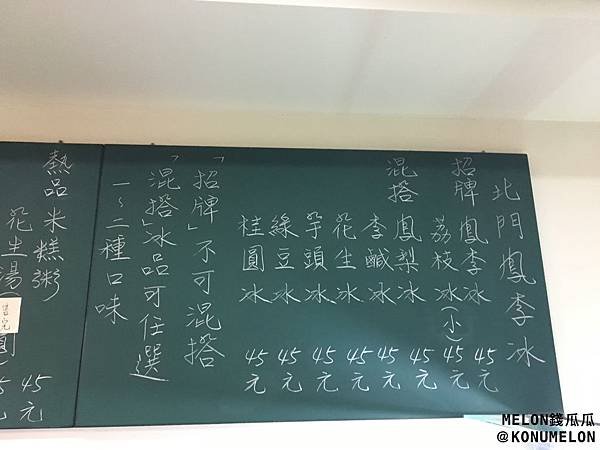 北門鳳李冰
招牌 鳳李冰 45元
荔枝冰(小) 45元
混搭 鳳梨冰 45元
李鹹冰 45元
花生冰 45元
芋頭冰 45元
綠豆冰 45元
桂圓冰 45元
「招牌」不可混搭
「混搭」冰品可任選
一~二種口味
熱品 米糕粥 45元
花生湯
MELON錢瓜瓜
@KONUMELON